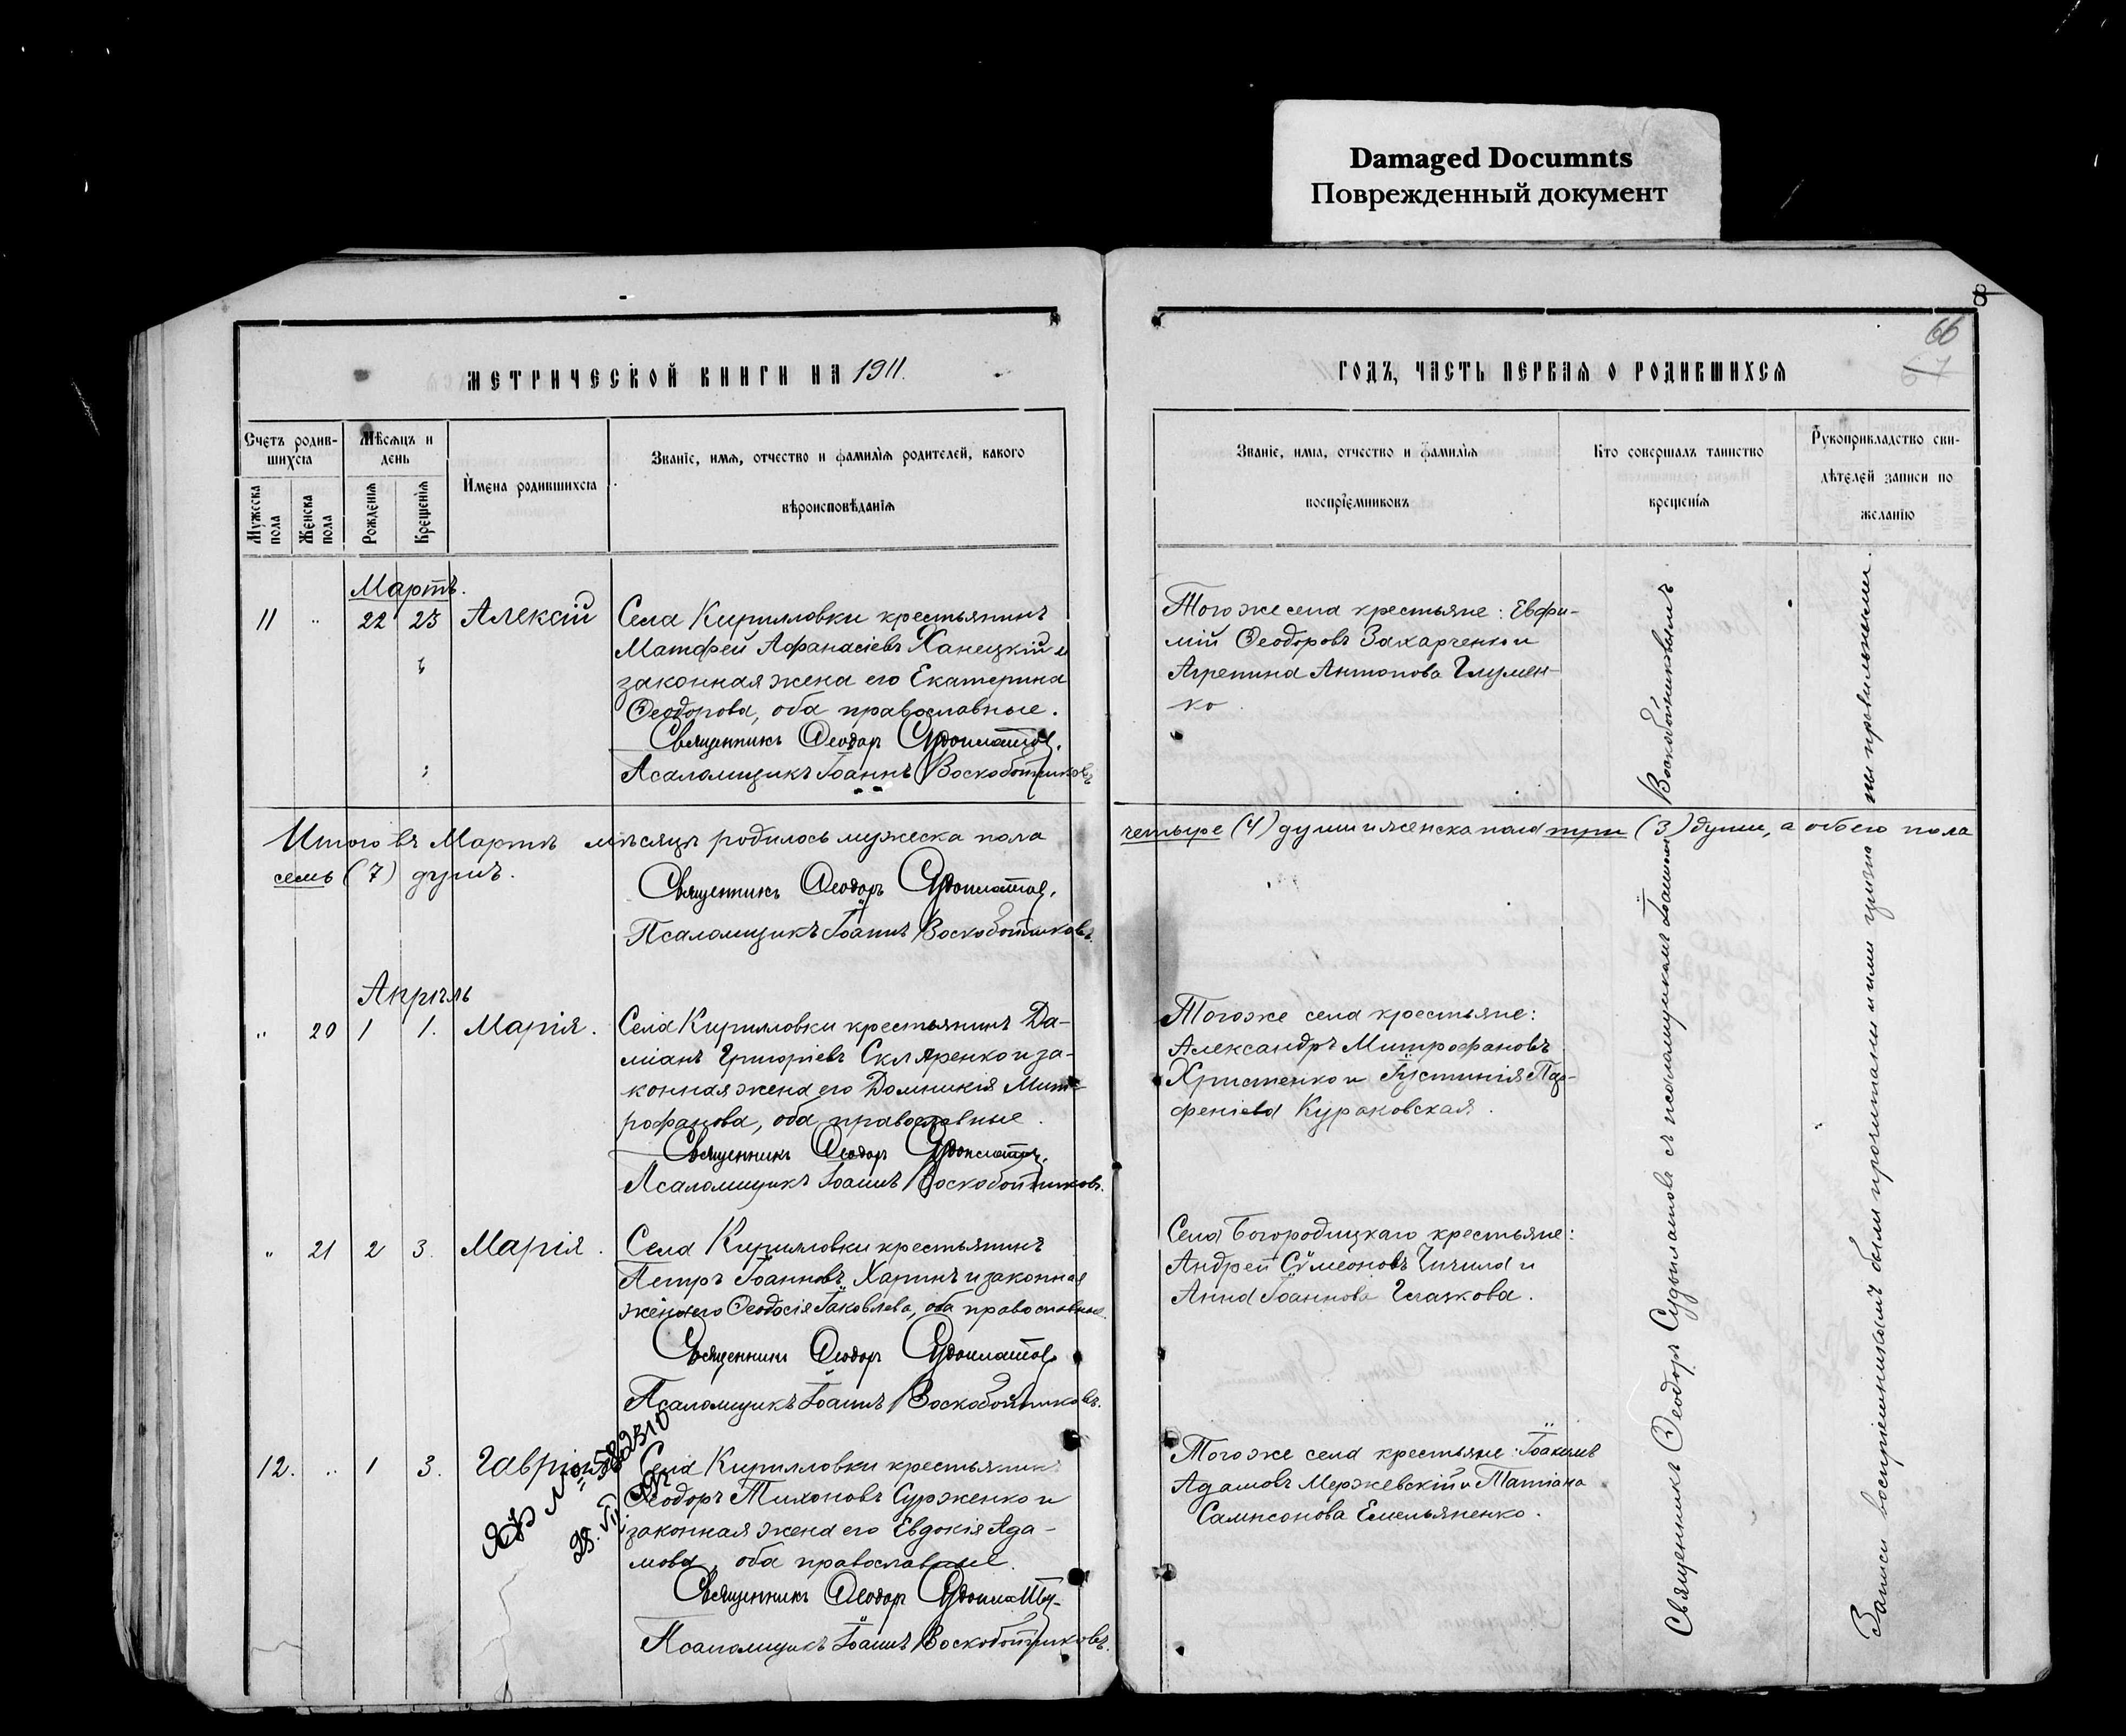 Damaged Documnts
Поврежденный документ
8
66
67
МЕТРИЧЕСКОЙ КНИГИ НА 1911.
ГОДЪ, ЧАСТЬ ПЕРВАЯ О РОДИВШИХСЯ
Счетъ родив-
шихся
Мѣсяцъ и
день
Мужеска
пола
Женска
пола
Рожденія
Крещенія
Имена родившихся
Званіе, имя, отчество и фамилія родителей, какого
вѣроисповѣданія
Званіе, имя, отчество и фамилія
воспріемниковъ
Кто совершалъ таинство
крещенія
Рукоприкладство сви-
дѣтелей записи по
желанію
Мартъ.
11 " 22 23 Алексій
Села Кирилловки крестьянинъ
Матфей Афанасіевъ Ханецкій и
законная жена его Екатерина
Ѳеодорова, оба православные.
Священникъ Ѳеодоръ Судоплатов.
Псаломщикъ Іоаннъ Воскобойниковъ
Того же села крестьяне: Евфи-
мій Ѳеодоровъ Захарченко и
Агрепина Антонова Глумен-
ко.
Итого въ Мартѣ мѣсяцѣ родилось мужеска пола
четыре (4) души и женска пола три (3) души, а обоего пола
семь (7) душъ.
Священникъ Ѳеодоръ Судоплатов.
Псаломщикъ Іоаннъ Воскобойниковъ.
Апрѣль
" 20 1 1. Марія.
Села Кирилловки крестьянинъ Да-
міанъ Григоріевъ Скляренко и за-
конная жена его Домникія Мит-
рофанова, оба православные.
Священникъ Ѳеодоръ Судоплатов.
Псаломщикъ Іоаннъ Воскобойниковъ.
Того же села крестьяне:
Александръ Митрофановъ
Христенко и Іустинія Пар-
феніева Кураковская.
" 21 2 3. Марія.
Села Кирилловки крестьянинъ
Петръ Іоанновъ Харинъ и законная
жена его Ѳеодосія Іаковлева, оба православные.
Священникъ Ѳеодоръ Судоплатов
Псаломщикъ Іоаннъ Воскобойниковъ.
Села Богородицкаго крестьяне:
Андрей Сѵмеоновъ Чичила и
Анна Іоаннова Глазкова.
12. " 1 3. Гавріилъ
№ 582310
Села Кирилловки крестьянинъ
Ѳеодоръ Тихоновъ Сурженко и
законная жена его Евдокія Ада-
мова, оба православные.
Священникъ Ѳеодоръ Судоплатов
Псаломщикъ Іоаннъ Воскобойниковъ.
Того же села крестьяне: Іоакимъ
Адамовъ Мержевскій и Татіана
Сампсонова Емельяненко.
Священникъ Ѳеодоръ Судоплатовъ съ псаломщикомъ Іоанномъ Воскобойниковымъ
Записи воспріемникамъ были прочитаны и ими признаны правильными.